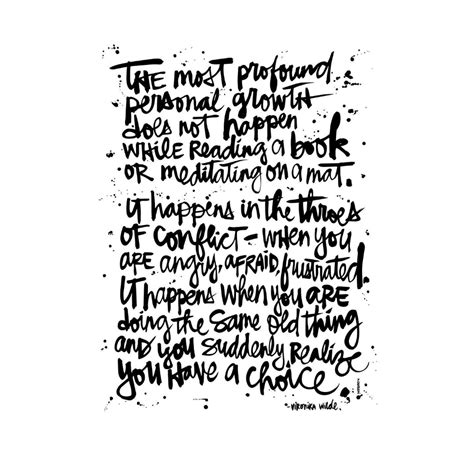 THE most profound
personal growth
does not happen
WHILE Reading a book
OR meditating on a mat.
IT happens in the throes
OF conflict - WHEN YOU
ARE angry, AFRAID, frustrated.
IT happens WHEN you ARE
doing the same old thing
AND you suddenly Realize
you HAVE a choice
vironika wilde.